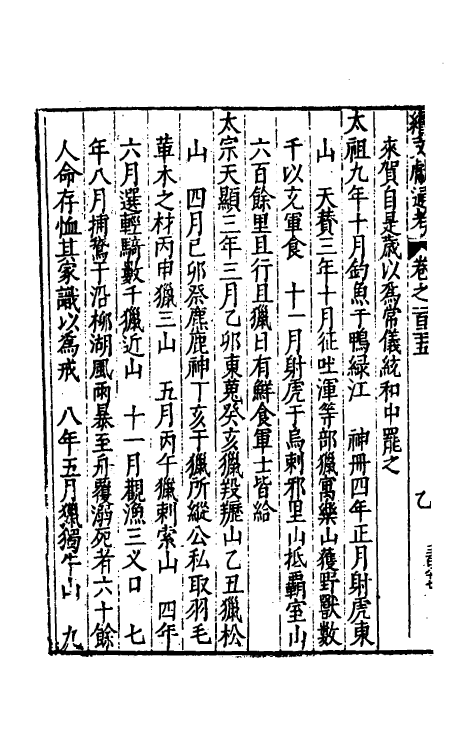 續文獻通考 卷之一百二十五 乙
來賀自是歲以爲常儀統和中罷之
太祖九年十月釣魚于鴨緑江 神冊四年正月射虎東
山 天賛三年十月征吐渾等部獵寓樂山獲野獸數
千以充軍食 十一月射虎于烏剌邪里山抵覇室山
六百餘里且行且獵日有鮮食軍士皆給
太宗天顯三年三月乙卯東蒐癸亥獵羖䍽山乙丑獵松
山 四月己卯祭麃鹿神丁亥于獵所縱公私取羽毛
革木之材丙申獵三山 五月丙午獵剌索山 四年
六月選輕騎數千獵近山 十一月觀漁三义口 七
年八月捕鵞于沿柳湖風雨暴至舟覆溺死者六十餘
人命存恤其家識以爲戒 八年五月獵獨牛山 九